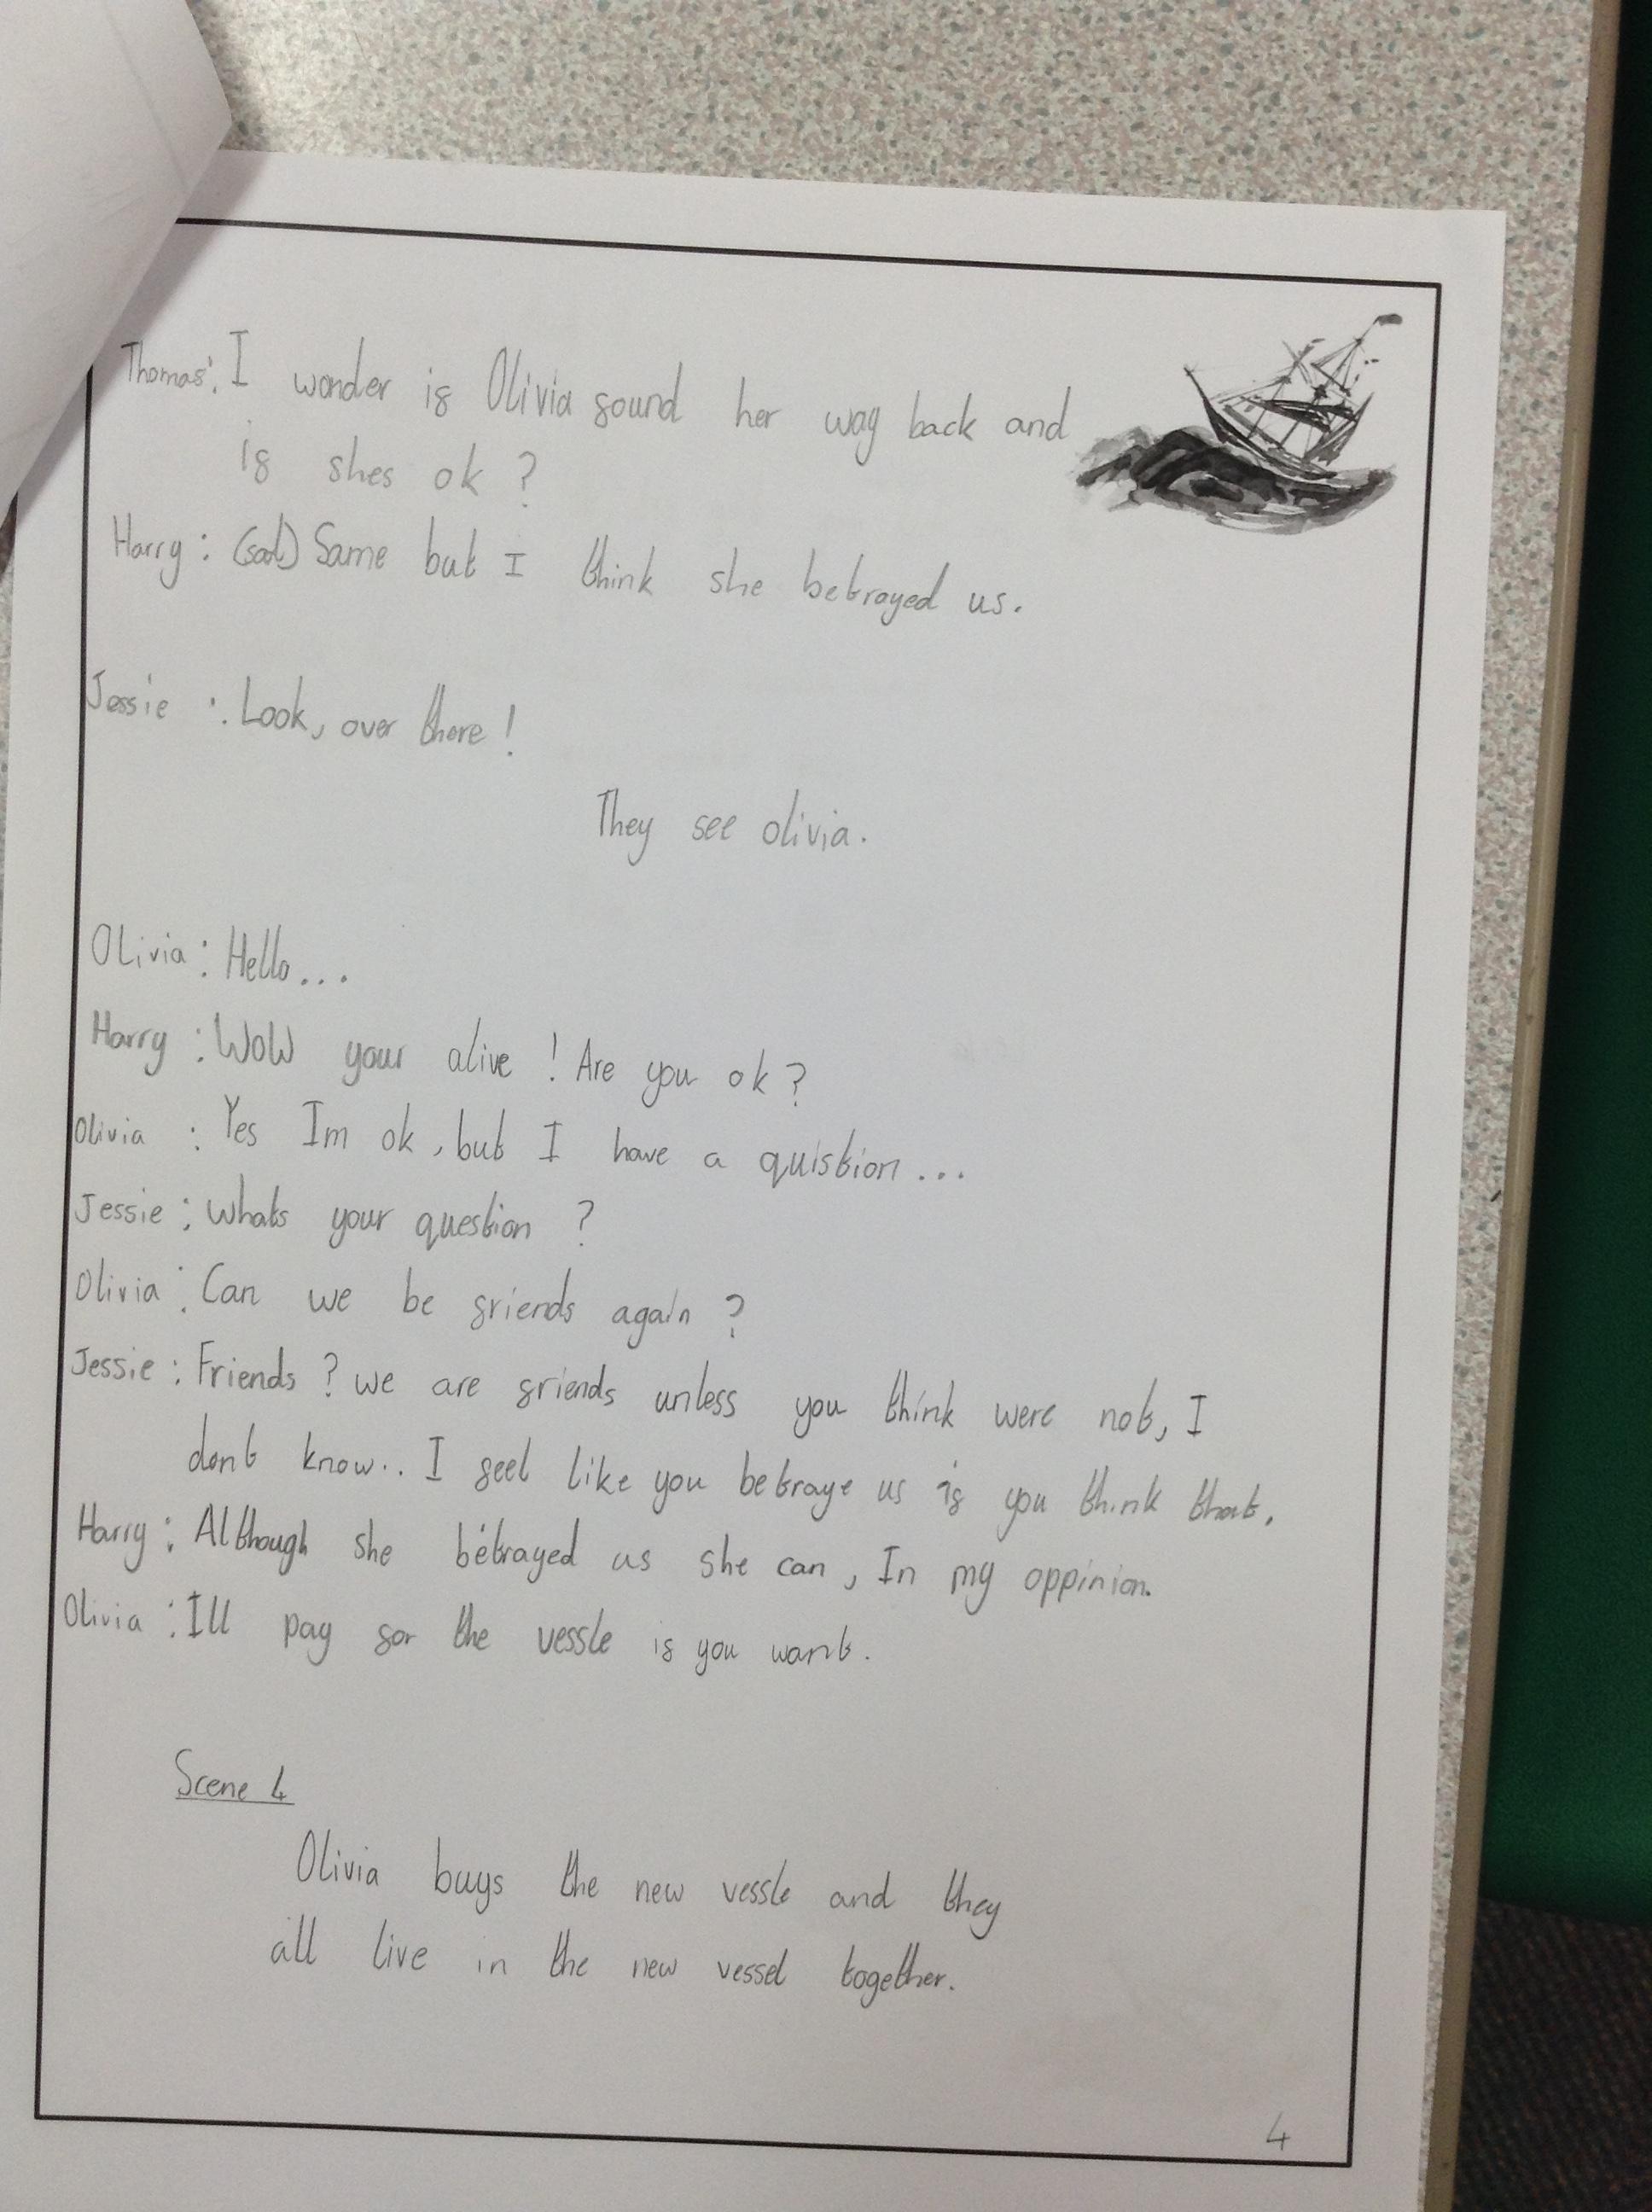 Thomas: I wonder if Olivia found her way back and
if shes ok ?
Harry : (sad) Same but I think she betrayed us.
Jessie : Look, over there !
They see olivia.
Olivia : Hello...
Harry : WoW your alive ! Are you ok ?
Olivia : Yes Im ok , but I have a quistion ...
Jessie : Whats your question ?
Olivia : Can we be friends again ?
Jessie : Friends ? we are friends unless you think were not, I
dont know.. I feel like you betraye us if you think that.
Harry : Although she betrayed us she can , In my oppinion.
Olivia : Ill pay for the vessle if you want.
Scene 4
Olivia buys the new vessle and they
all live in the new vessel together.
4